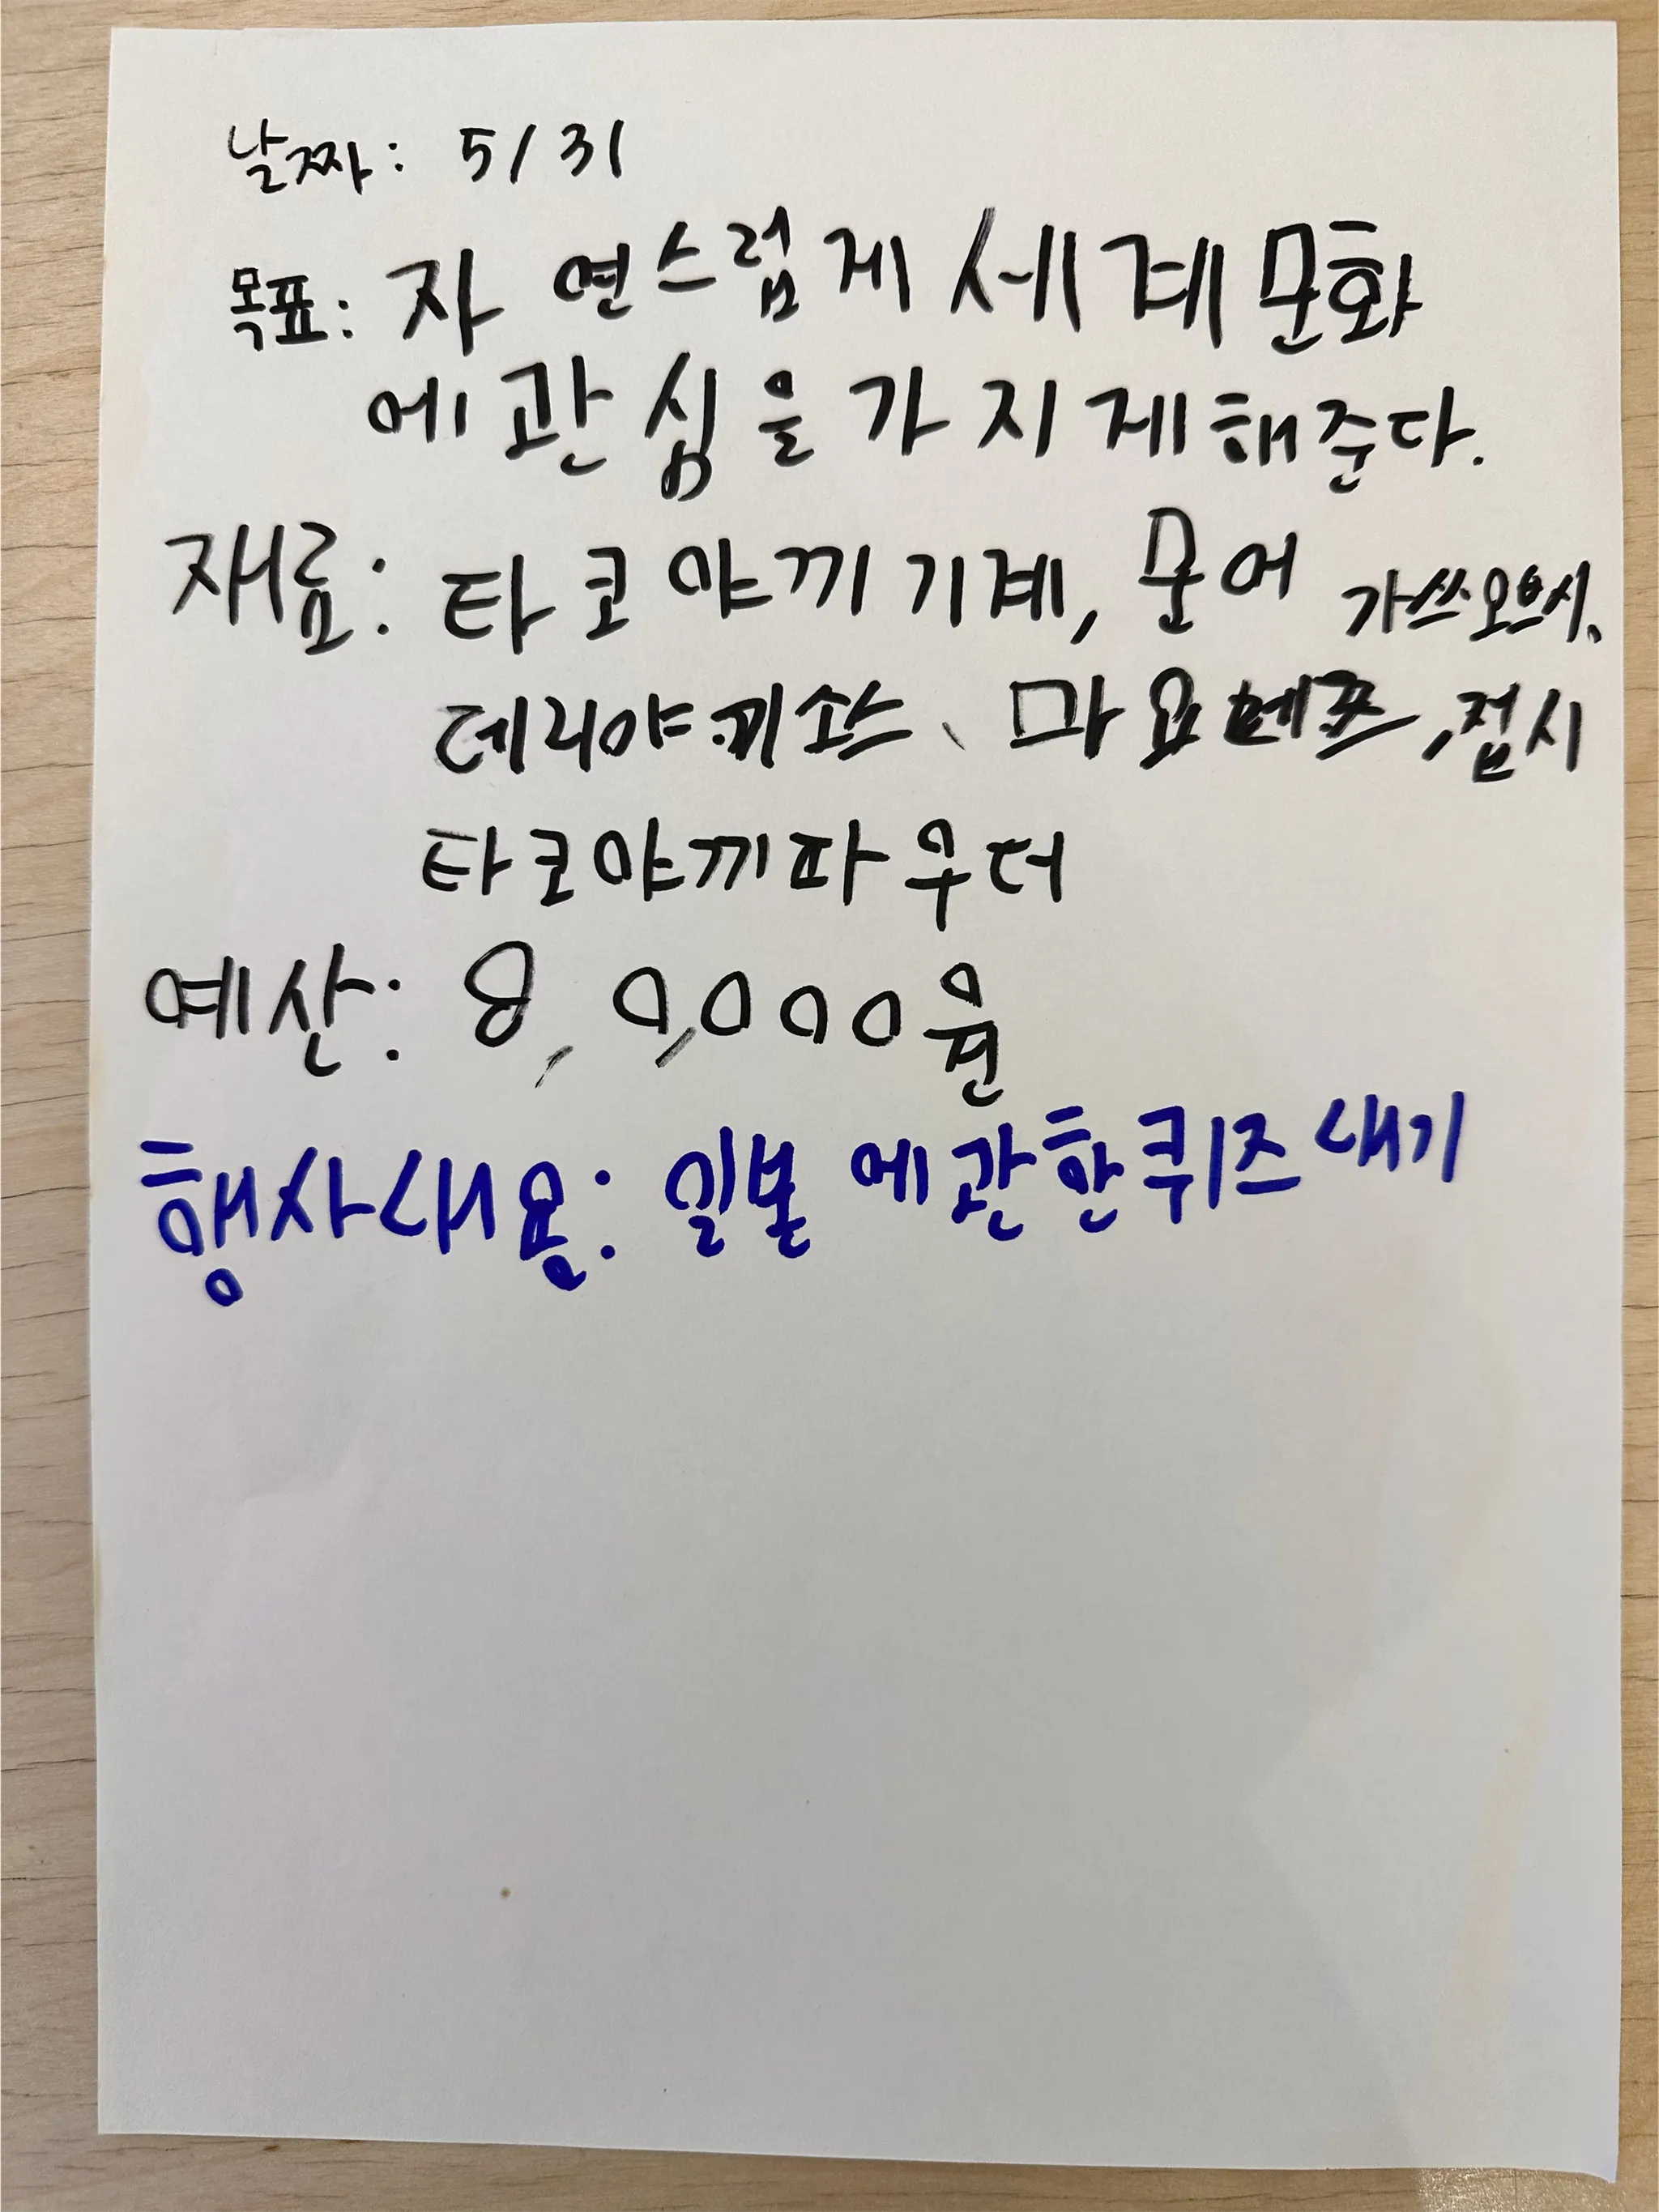 날짜: 5/31
목표: 자연스럽게 세계문화
에 관심을 가지게해준다.
재료: 타코야끼기계, 문어 가쓰오브시,
데리야끼소스, 마요네즈, 접시
타코야끼파우더
예산: 8,0,000원
행사내용: 일본에관한퀴즈내기